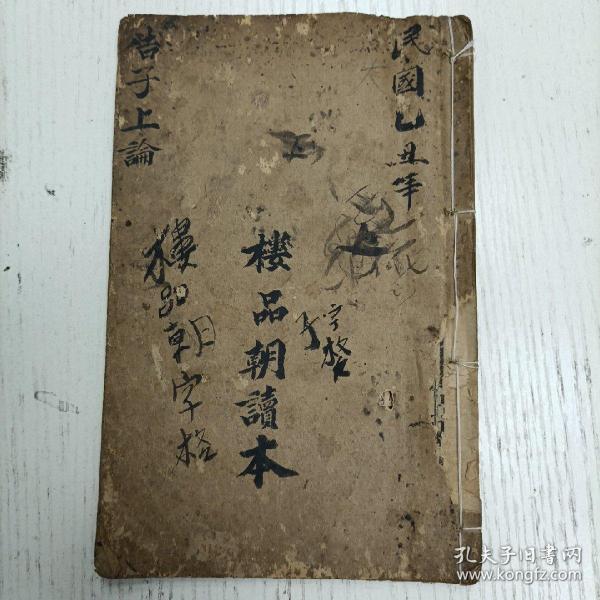 民國乙丑年
字格
樓品朝讀本
樓品朝字格
告子上論
孔夫子旧書网
www.kongfz.com